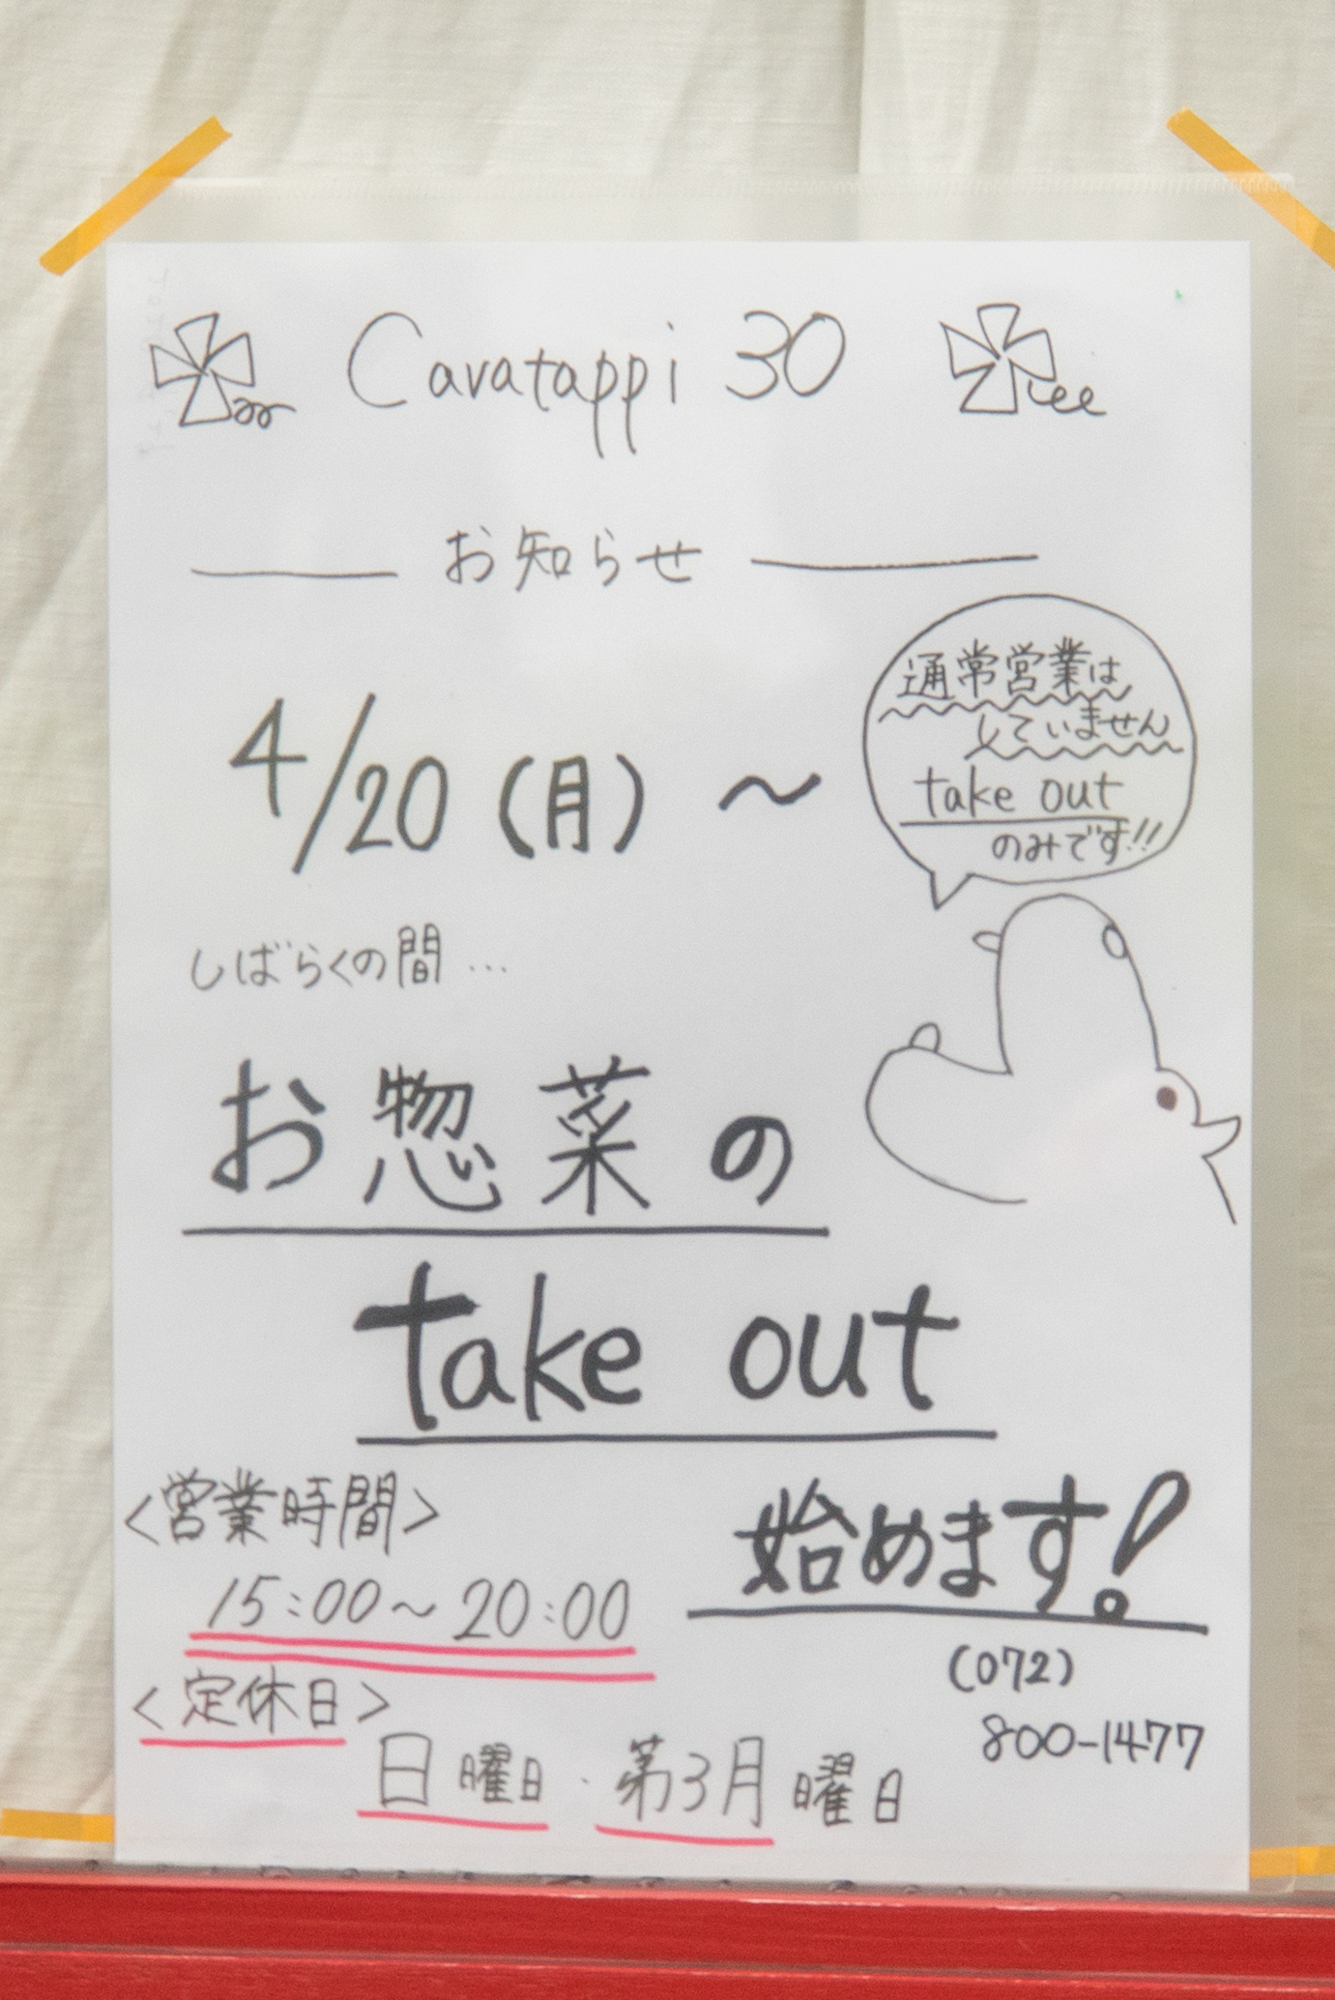 Cavatappi 30
お知らせ
4/20 (月) 〜
通常営業は
していません
take out
のみです!!
しばらくの間…
お惣菜の
take out
始めます!
<営業時間>
15:00〜20:00
<定休日>
日曜日・第3月曜日
(072)
800-1477